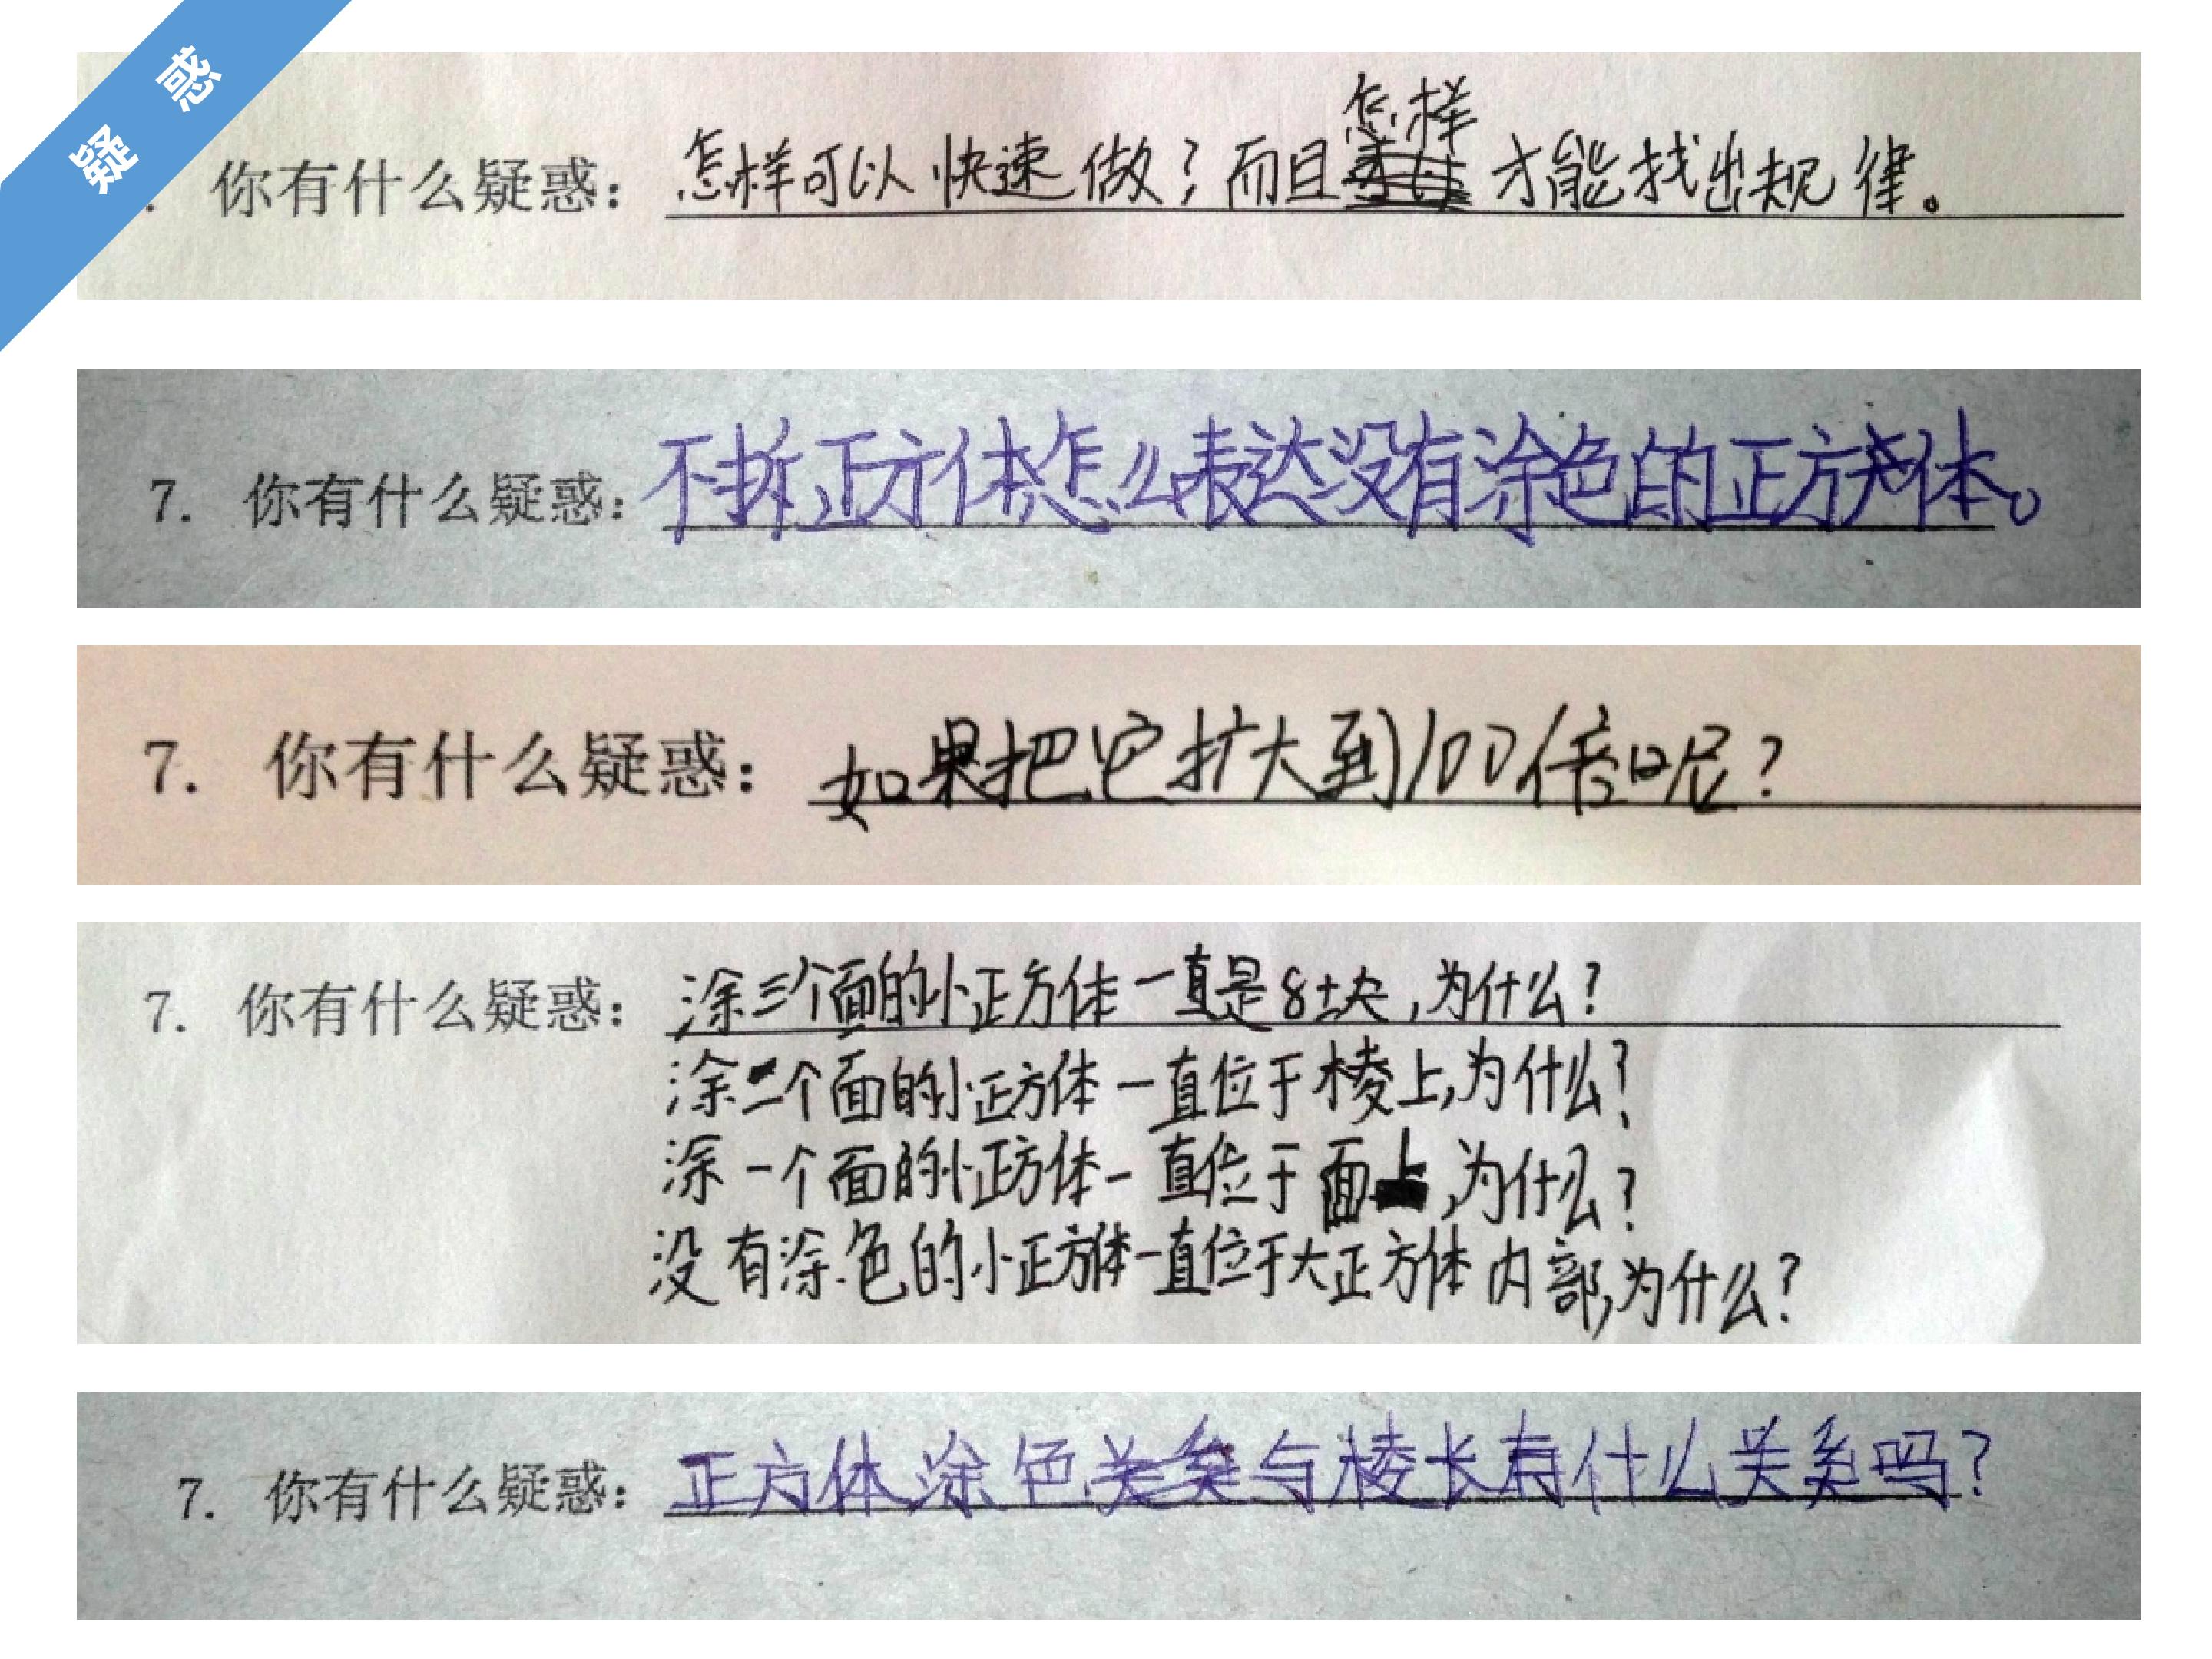 疑 惑
. 你有什么疑惑：怎样可以快速做？而且怎样才能找出规律。
7. 你有什么疑惑：不拆正方体怎么表达没有涂色的正方体。
7. 你有什么疑惑：如果把它扩大到100倍呢？
7. 你有什么疑惑：涂三个面的小正方体一直是8块，为什么？
涂二个面的小正方体一直位于棱上，为什么？
涂一个面的小正方体一直位于面上，为什么？
没有涂色的小正方体一直位于大正方体内部，为什么？
7. 你有什么疑惑：正方体涂色关系与棱长有什么关系吗？